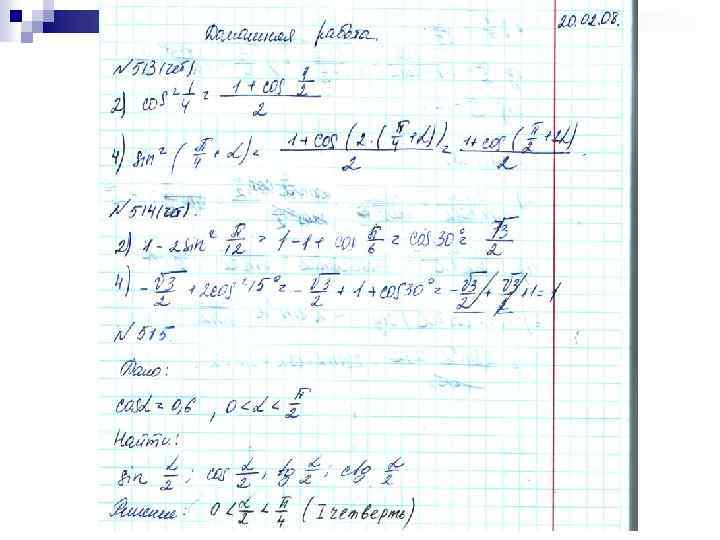 20.02.08.
Домашняя работа.
№513(чет).
2) cos² 1/4 = (1 + cos 1/2)/2
4) sin² (π/4 + α) = (1 + cos (2·(π/4 + α)))/2 = (1 + cos (π/2 + 2α))/2.
№514(чет).
2) 1 - 2sin² π/12 = 1 - 1 + cos π/6 = cos 30° = √3/2
4) -√3/2 + 2cos² 15° = -√3/2 + 1 + cos 30° = -√3/2 + √3/2 + 1 = 1
№515.
Дано:
cosα = 0,6 , 0 < α < π/2
Найти:
sin α/2 ; cos α/2 ; tg α/2 ; ctg α/2
Решение: 0 < α/2 < π/4 (I четверть)